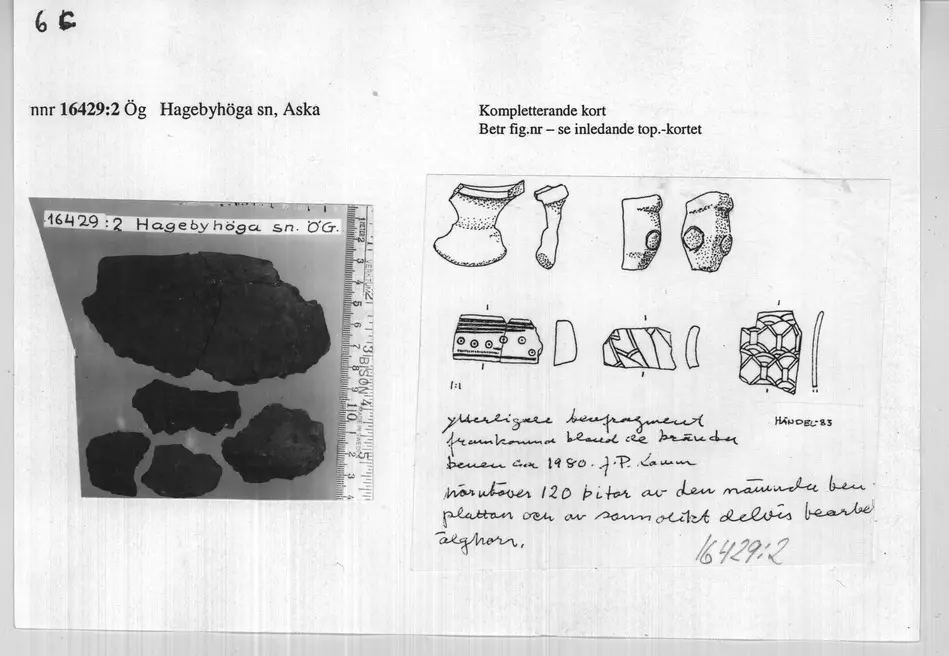 6 C
nnr 16429:2 Ög Hagebyhöga sn, Aska
Kompletterande kort
Betr fig.nr – se inledande top.-kortet
16429:2 Hagebyhöga sn. ÖG.
1:1
HÄNDEL-83
ytterligare benfragment
framkomna bland de brända
benen ca 1980. J.P. Lamm
härutöver 120 bitar av den nämnda ben-
plattan och av sannolikt delvis bearbe
älghorn.
16429:2